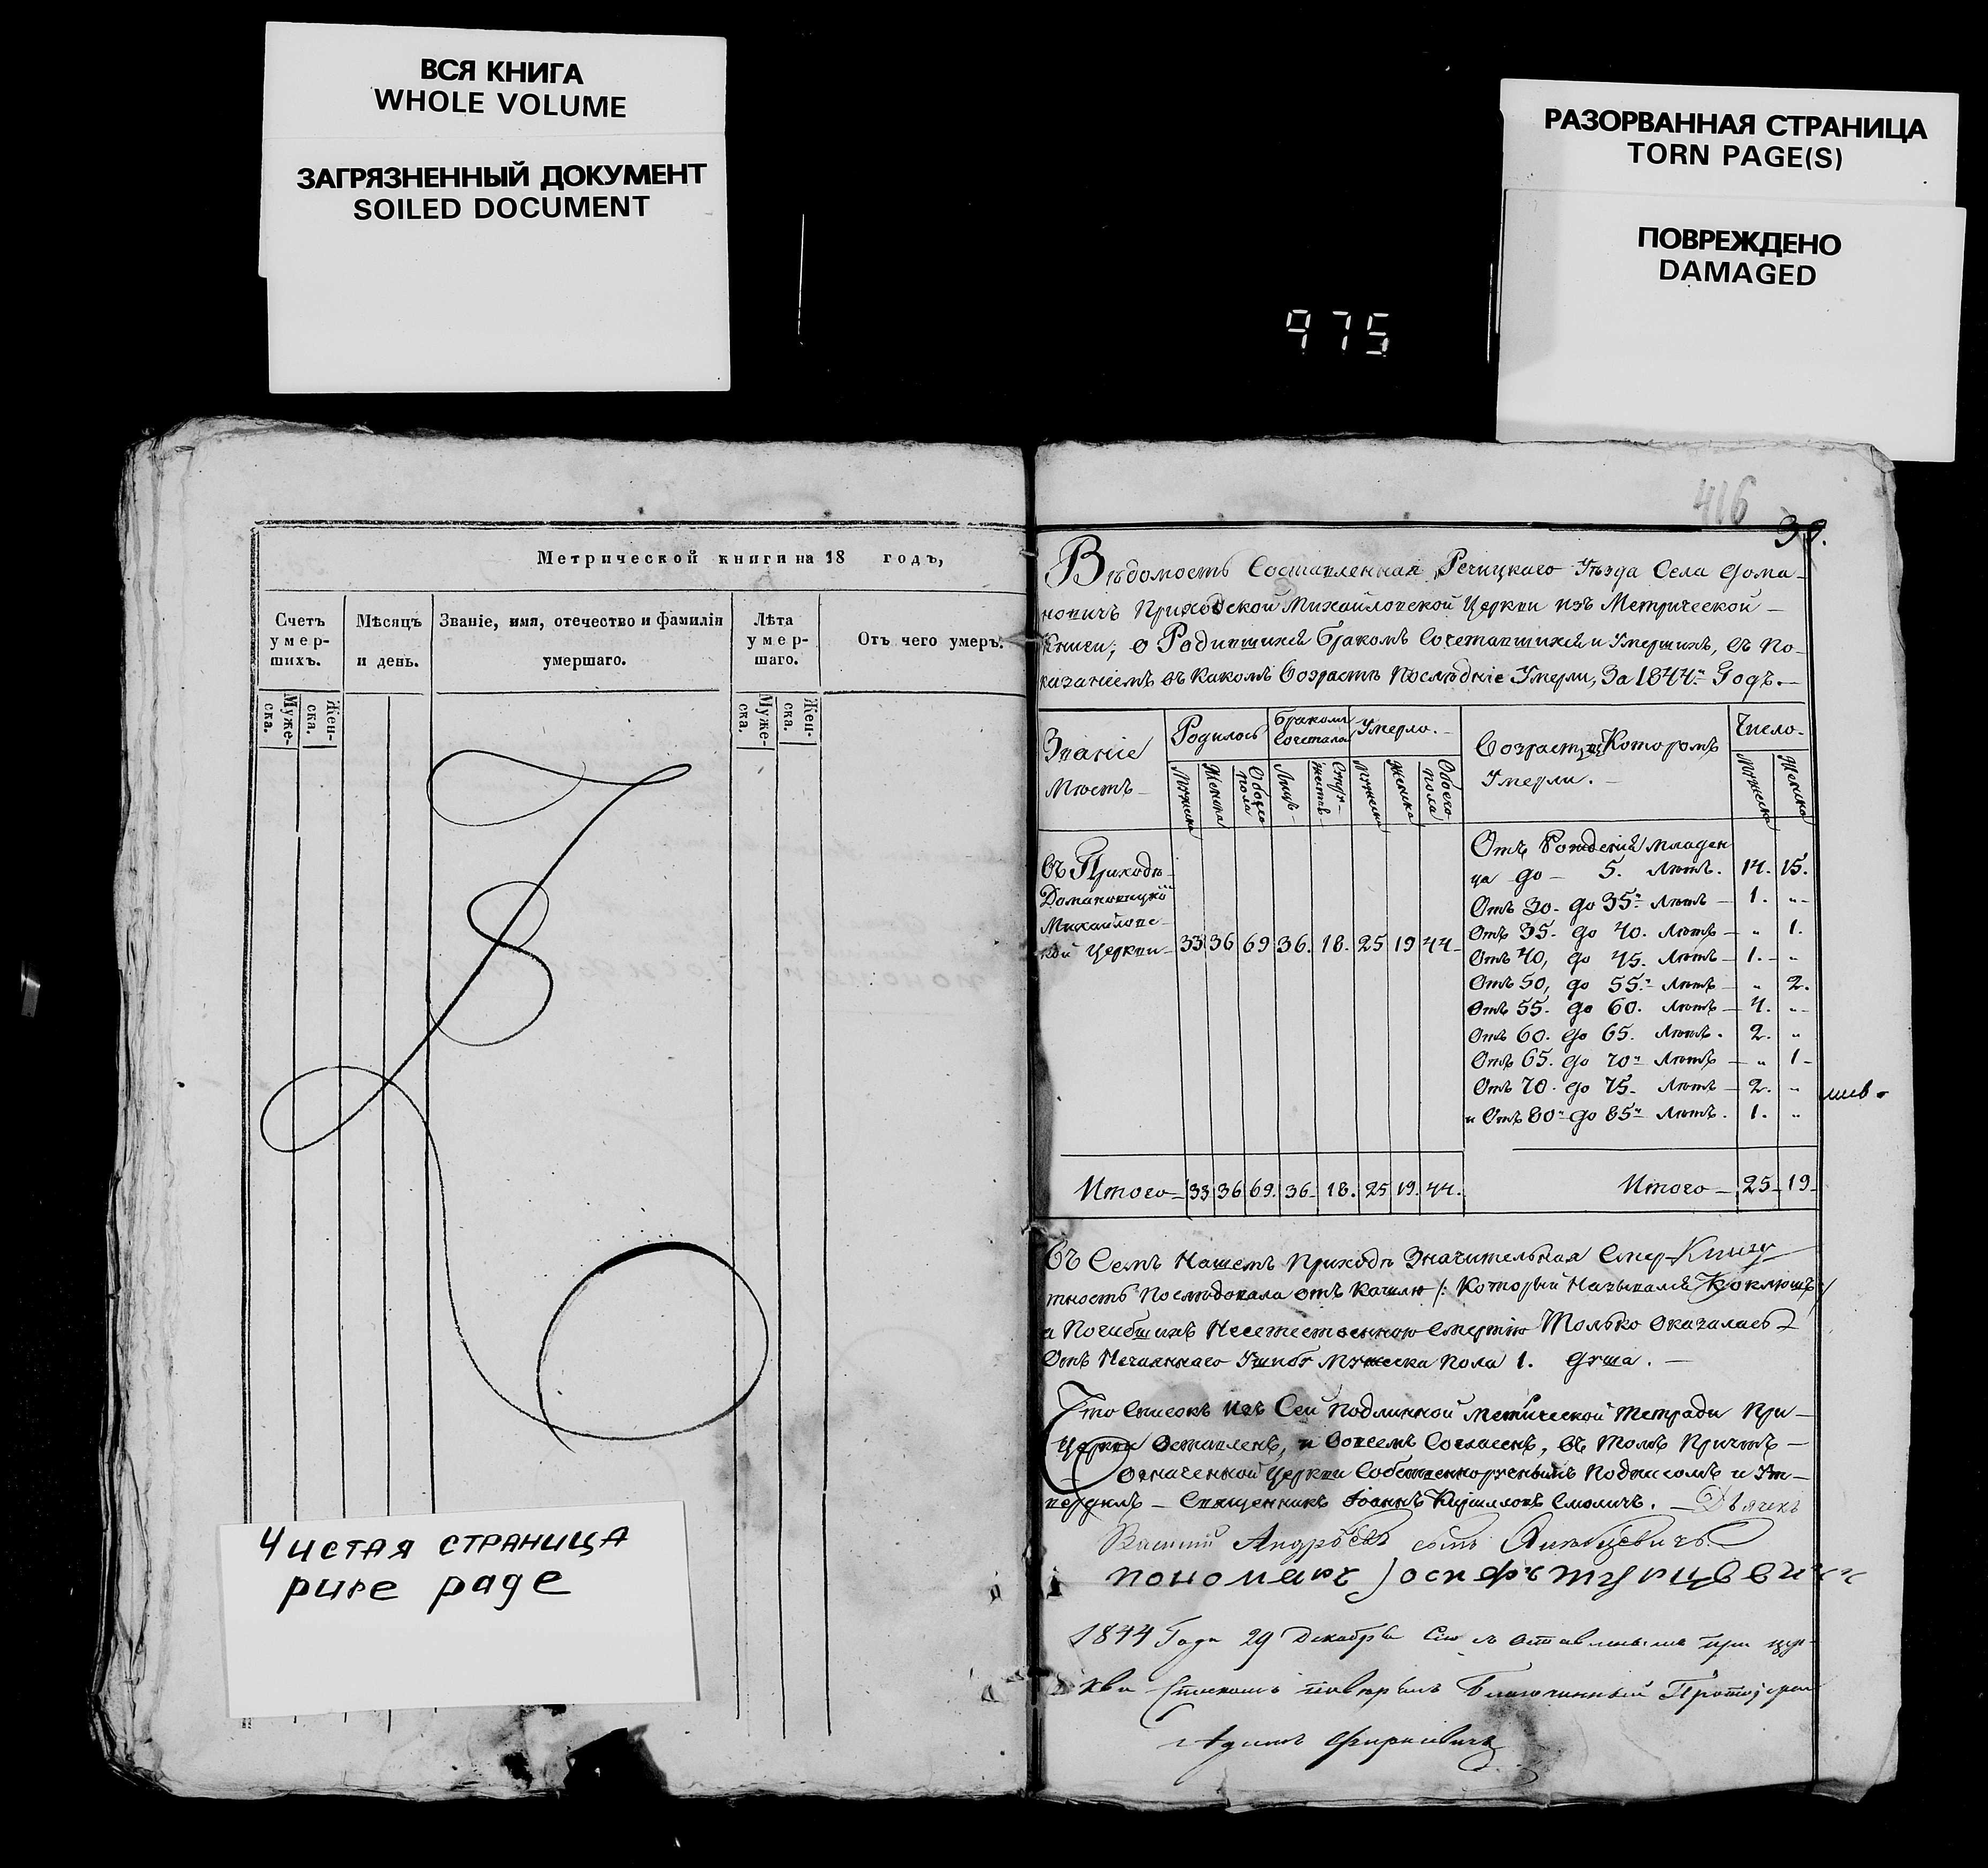 ВСЯ КНИГА
WHOLE VOLUME
ЗАГРЯЗНЕННЫЙ ДОКУМЕНТ
SOILED DOCUMENT
РАЗОРВАННАЯ СТРАНИЦА
TORN PAGE(S)
ПОВРЕЖДЕНО
DAMAGED
975
Метрической книги на 18 годъ,
Счетъ умер-шихъ.
Мѣсяцъ и день.
Званіе, имя, отечество и фамилія умершаго.
Лѣта умер-шаго.
Отъ чего умеръ.
Муже-ска.
Жен-ска.
Муже-ска.
Жен-ска.
Чистая страница
pure page
416
39.
Вѣдомость Составленная Речицкаго Уѣзда Села Дома-
новичъ Приходской Михайловской Церкви изъ Метрической
Книги, о Родившихся Бракомъ Сочетавшихся и Умершихъ, съ по-
казаніемъ въ какомъ возрастѣ Послѣдніе Умерли, За 1844й Годъ.
Званіе Мѣстъ
Родилось
Бракомъ Сочеталось
Умерло.
Возрастъ въ Которомъ Умерли.
Число.
Мужеска Женска Обоего пола Лицъ Мужеска Женска Обоего пола Мужеска Женска
Въ Приходѣ
Домановицкой
Михайловс-
кой Церкви 33 36 69 36. 18. 25 19 44
Отъ Рожденія младен
ца до 5. лѣтъ. 14. 15.
Отъ 30. до 35ти лѣтъ 1. „
Отъ 35. до 40. лѣтъ „ 1.
Отъ 40, до 45. лѣтъ 1. „
Отъ 50, до 55.ти лѣтъ „ 2.
Отъ 55. до 60. лѣтъ 4. „
Отъ 60. до 65. лѣтъ. 2. „
Отъ 65. до 70ти лѣтъ „ 1
Отъ 70. до 75. лѣтъ 2. „
и Отъ 80ти до 85ти лѣтъ. 1. „
Итого 33 36 69. 36. 18. 25 19. 44.
Итого 25 19
Въ Семъ Нашемъ Приходѣ Значительная Смер-
тность Послѣдовала отъ кашлю /: Который Назывался Коклюшъ :/
и Погибшихъ Неестественною смертію Только оказалась
Отъ Нечаяннаго Ушибу Мужеска Пола 1. душа.
Что Списокъ изъ Сей подлинной метрической тетради При
Церкви Оставленъ, и вовсемъ Согласенъ, въ томъ Причтъ
означенной Церкви Собственноручнымъ подписомъ и Ут-
вердилъ Священникъ Іоаннъ Смоличъ. Дьячекъ
Андрѣевъ сынъ
пономаръ
1844 Года 29 Декабря Сію съ оставленнымъ при цер-
кви Спискомъ повѣрялъ Благочинный Протоіерей